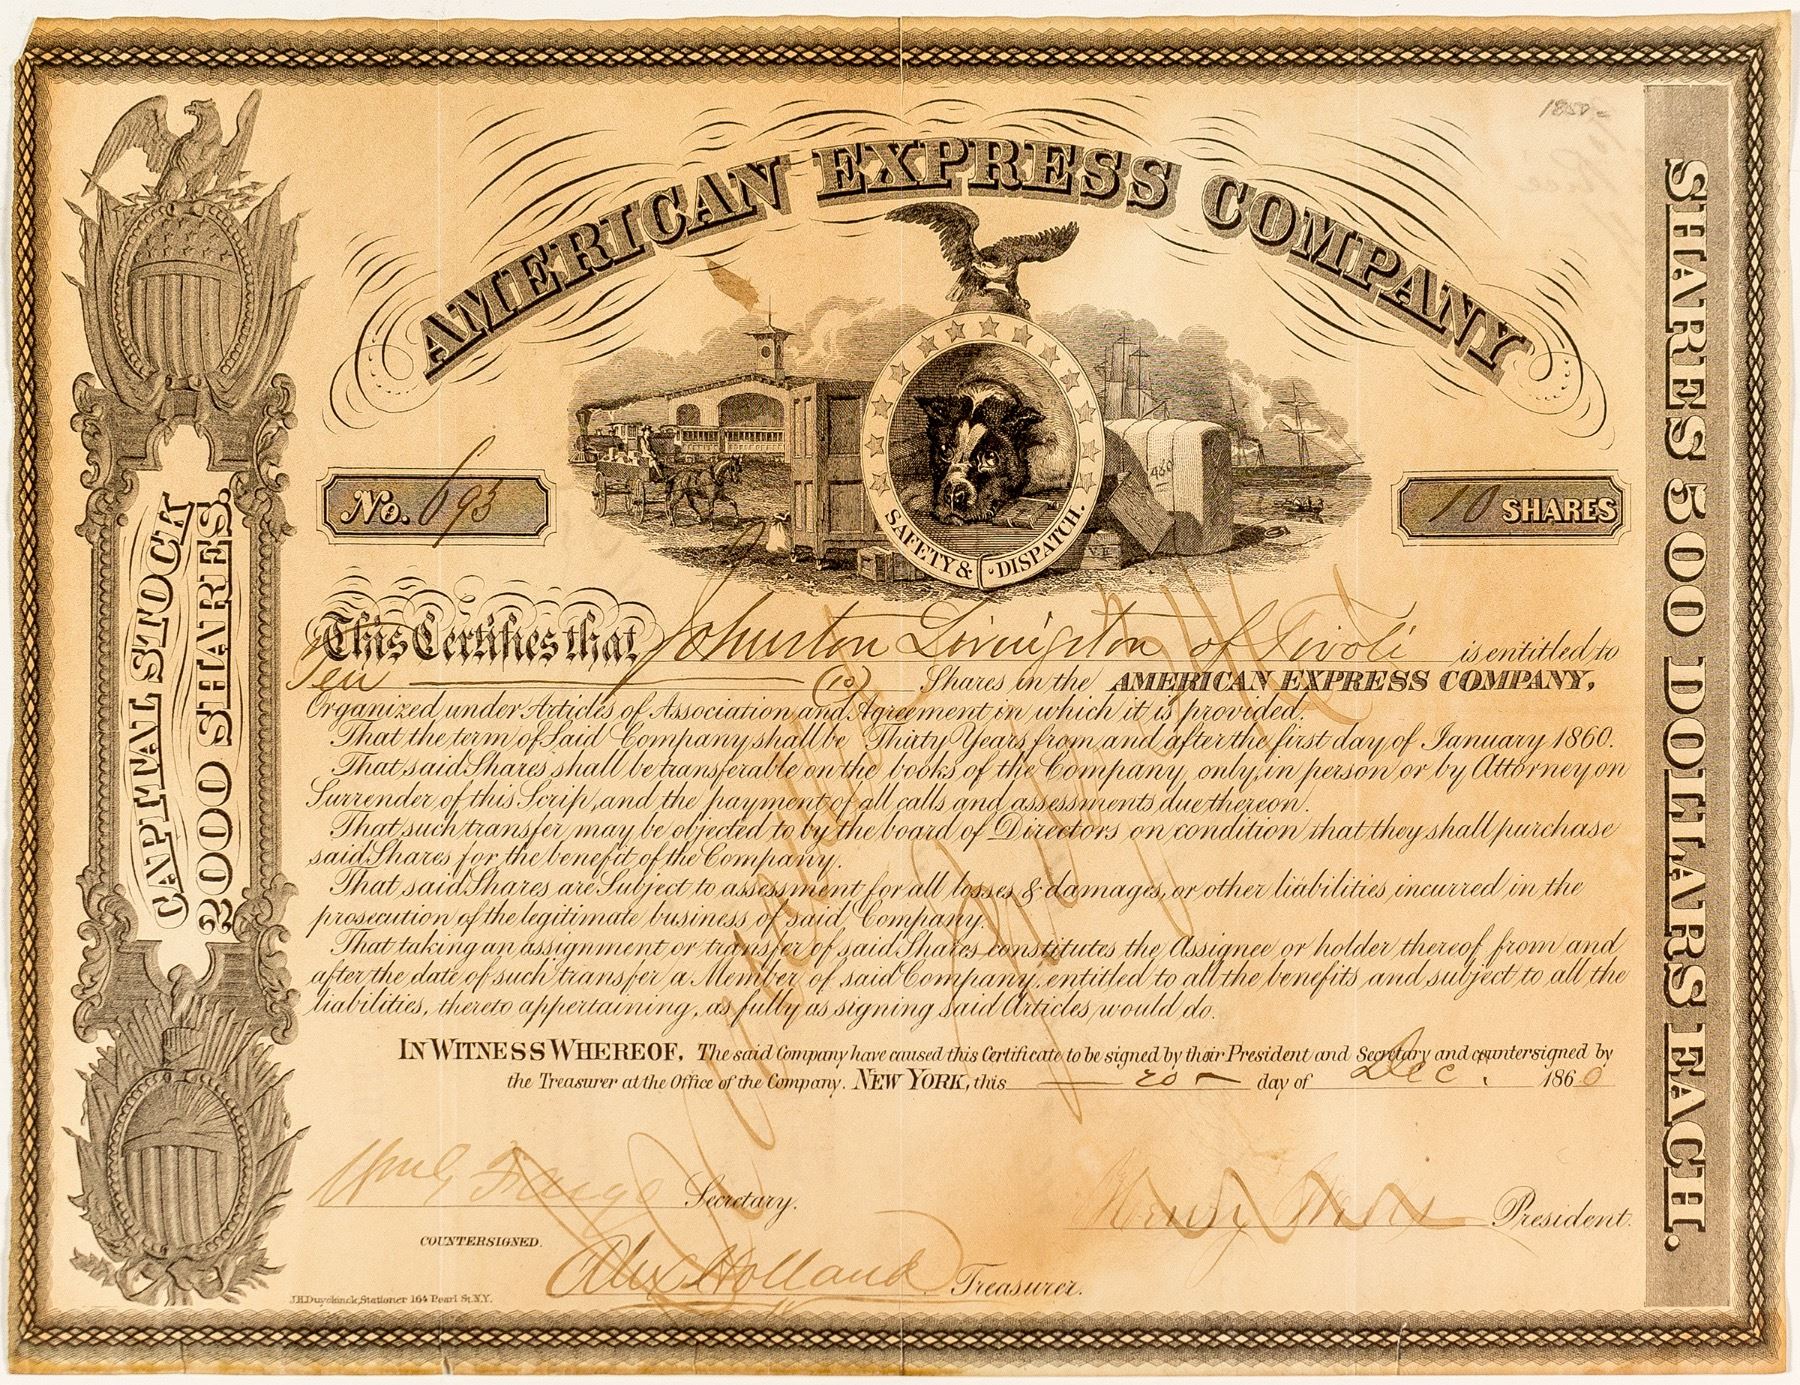 1850-
AMERICAN EXPRESS COMPANY
SAFETY & DISPATCH.
460
No. 693
10 SHARES
CAPITAL STOCK
3000 SHARES.
SHARES 500 DOLLARS EACH.
This Certifies that Johnston Livingston of Tivoli is entitled to
Ten (10) Shares in the AMERICAN EXPRESS COMPANY,
Organized under Articles of Association and Agreement in which it is provided.
That the term of Said Company shall be Thirty Years from and after the first day of January 1860.
That said Shares shall be transferable on the books of the Company only, in person or by Attorney on
Surrender of this Scrip, and the payment of all calls and assessments due thereon.
That such transfer may be objected to by the board of Directors on condition that they shall purchase
said Shares for the benefit of the Company.
That said Shares are Subject to assessment for all losses & damages, or other liabilities incurred in the
prosecution of the legitimate business of said Company.
That taking an assignment or transfer of said Shares constitutes the Assignee or holder thereof from and
after the date of such transfer a Member of said Company, entitled to all the benefits and subject to all the
liabilities, thereto appertaining, as fully as signing said Articles would do.
IN WITNESS WHEREOF, The said Company have caused this Certificate to be signed by their President and Secretary and countersigned by
the Treasurer at the Office of the Company. NEW YORK, this 20 day of Dec. 1860
Wm G Fargo Secretary.
Henry Wells President.
COUNTERSIGNED.
Alex Holland Treasurer.
J.H. Duyckinck, Stationer 164 Pearl St. N.Y.